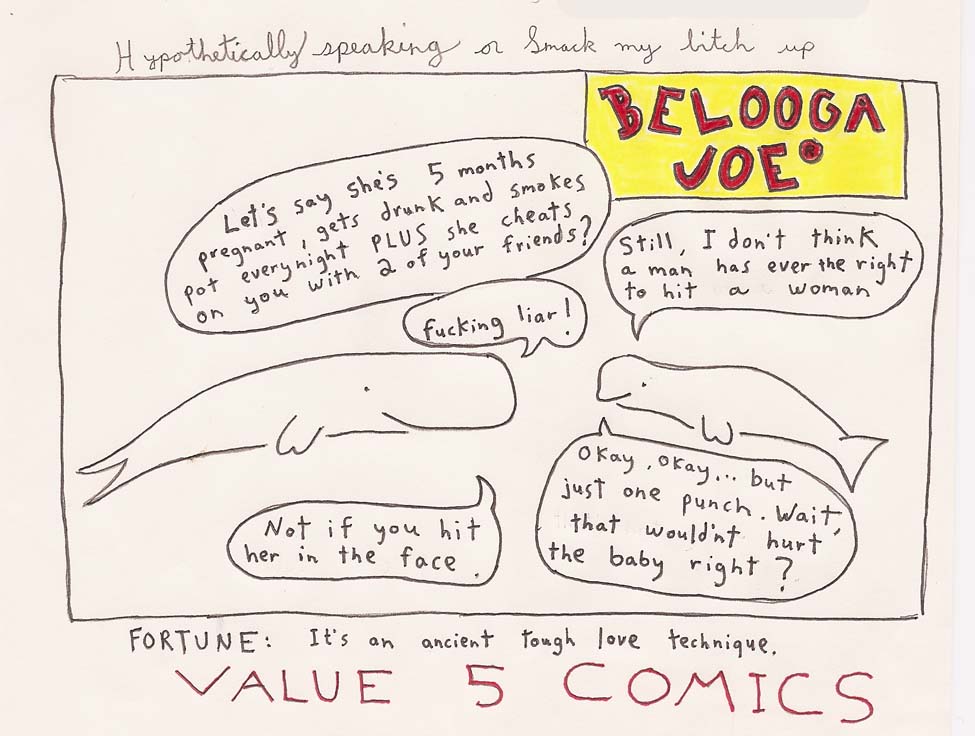 Hypothetically speaking or Smack my bitch up
BELOOGA
JOE®
Let's say she's 5 months
pregnant, gets drunk and smokes
pot everynight PLUS she cheats
on you with 2 of your friends?
Still, I don't think
a man has ever the right
to hit a woman
fucking liar!
Okay, okay... but
just one punch. Wait,
that would'nt hurt
the baby right?
Not if you hit
her in the face.
FORTUNE: It's an ancient tough love technique.
VALUE 5 COMICS